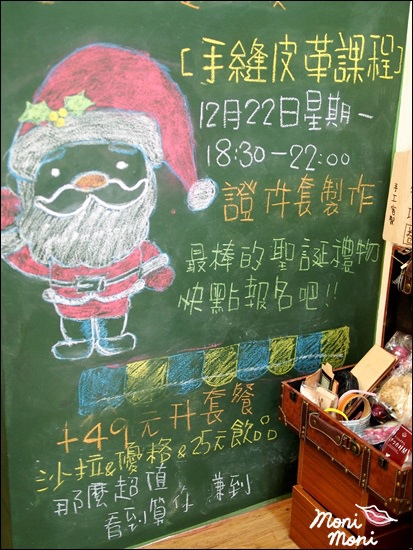 [手縫皮革課程]
12月22日星期一
18:30-22:00
證件套製作
最棒的聖誕禮物
快點報名吧!!
+49元升套餐
沙拉&優格&25元飲品
那麼超值
看到算你賺到
手工客製
Moni
Moni